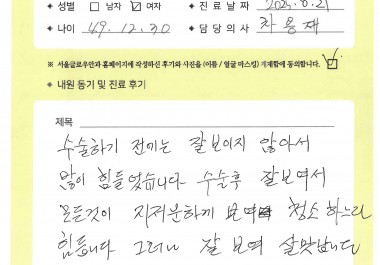 ◆ 성별 □ 남자 ☑ 여자 ◆ 진료날짜 2025.6.21
◆ 나이 49.12.30 ◆ 담당의사 차흥재
※ 서울글로우안과 홈페이지에 작성하신 후기와 사진을 (이름 / 얼굴 마스킹) 게재함에 동의합니다. ☑
◆ 내원 동기 및 진료 후기
제목
수술하기 전에는 잘보이지 않아서
많이 힘들었습니다 수술후 잘보여서
모든것이 지저분하게 보여 청소하느라
힘듭니다 그러나 잘 보여 살맛납니다